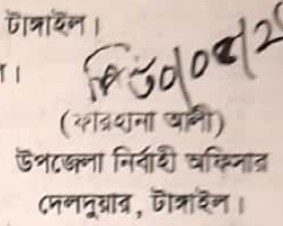 টাঙ্গাইল।
।
(ফারহানা আলী)
উপজেলা নির্বাহী অফিসার
দেলদুয়ার, টাঙ্গাইল।